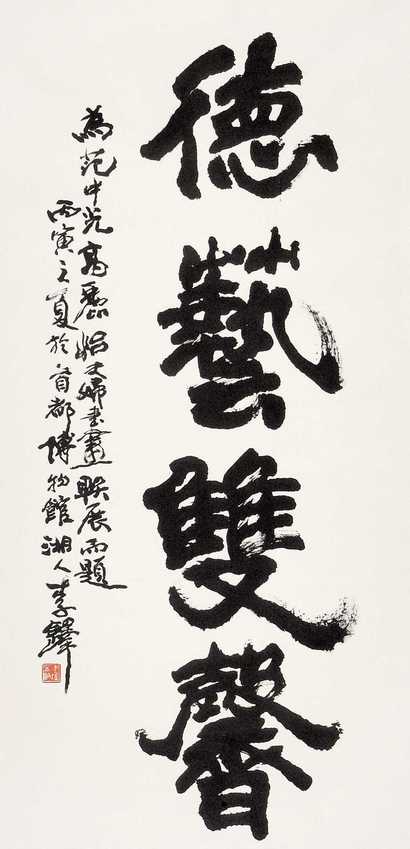 德藝雙馨
為范中光高麗娟夫婦書畫聯展而題
丙寅之夏於首都博物館湖人李鐸